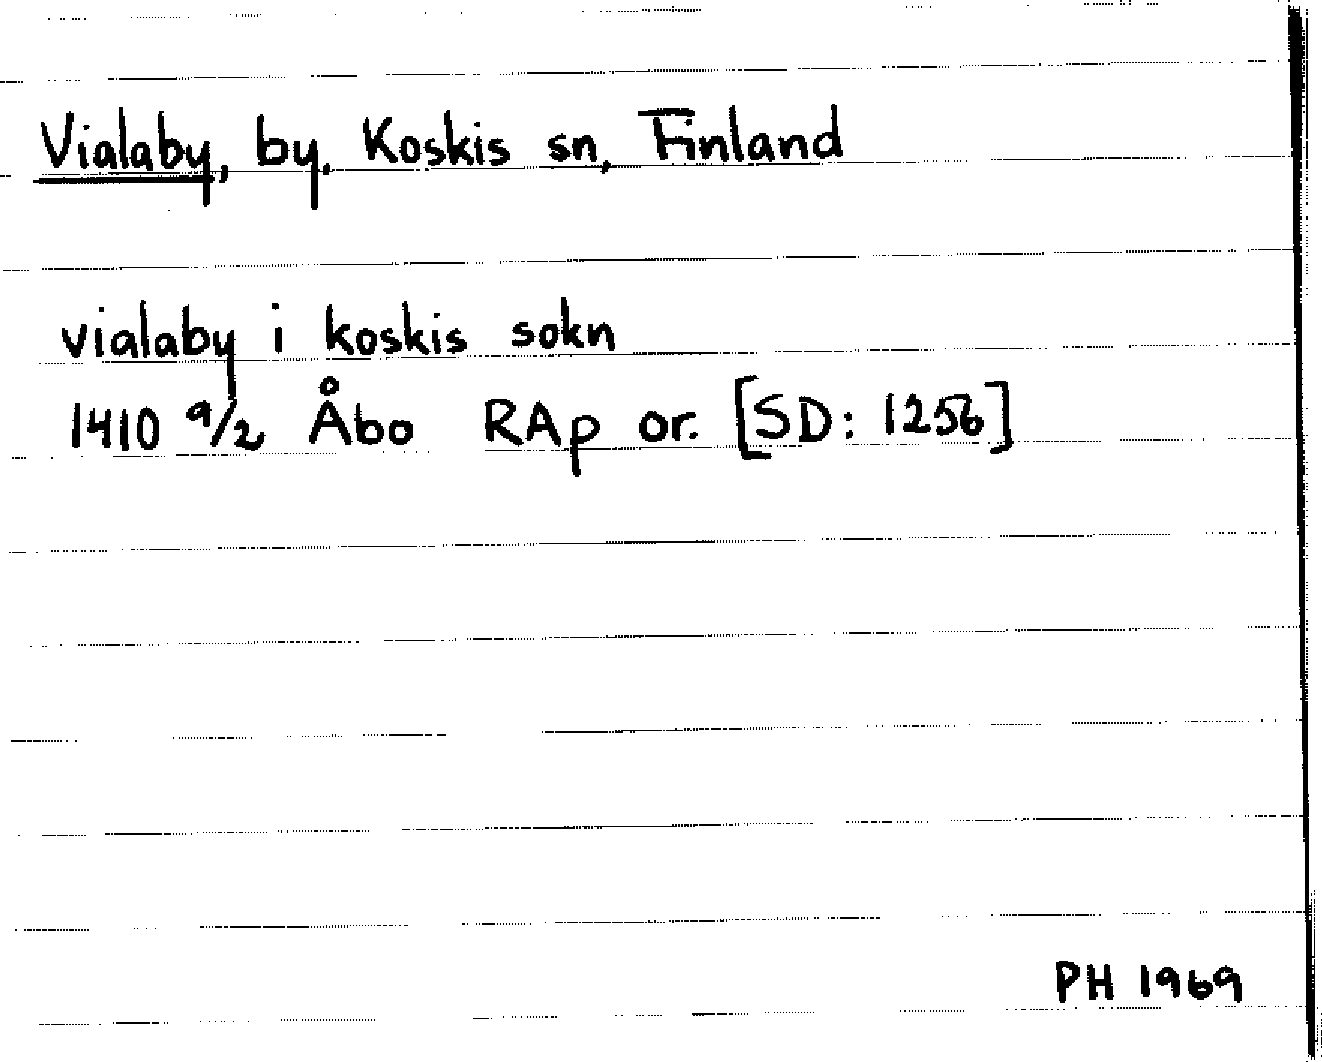 Vialaby, by. Koskis sn, Finland
vialaby i koskis sokn
1410 9/2 Åbo RAp or. [SD: 1256]
PH 1969